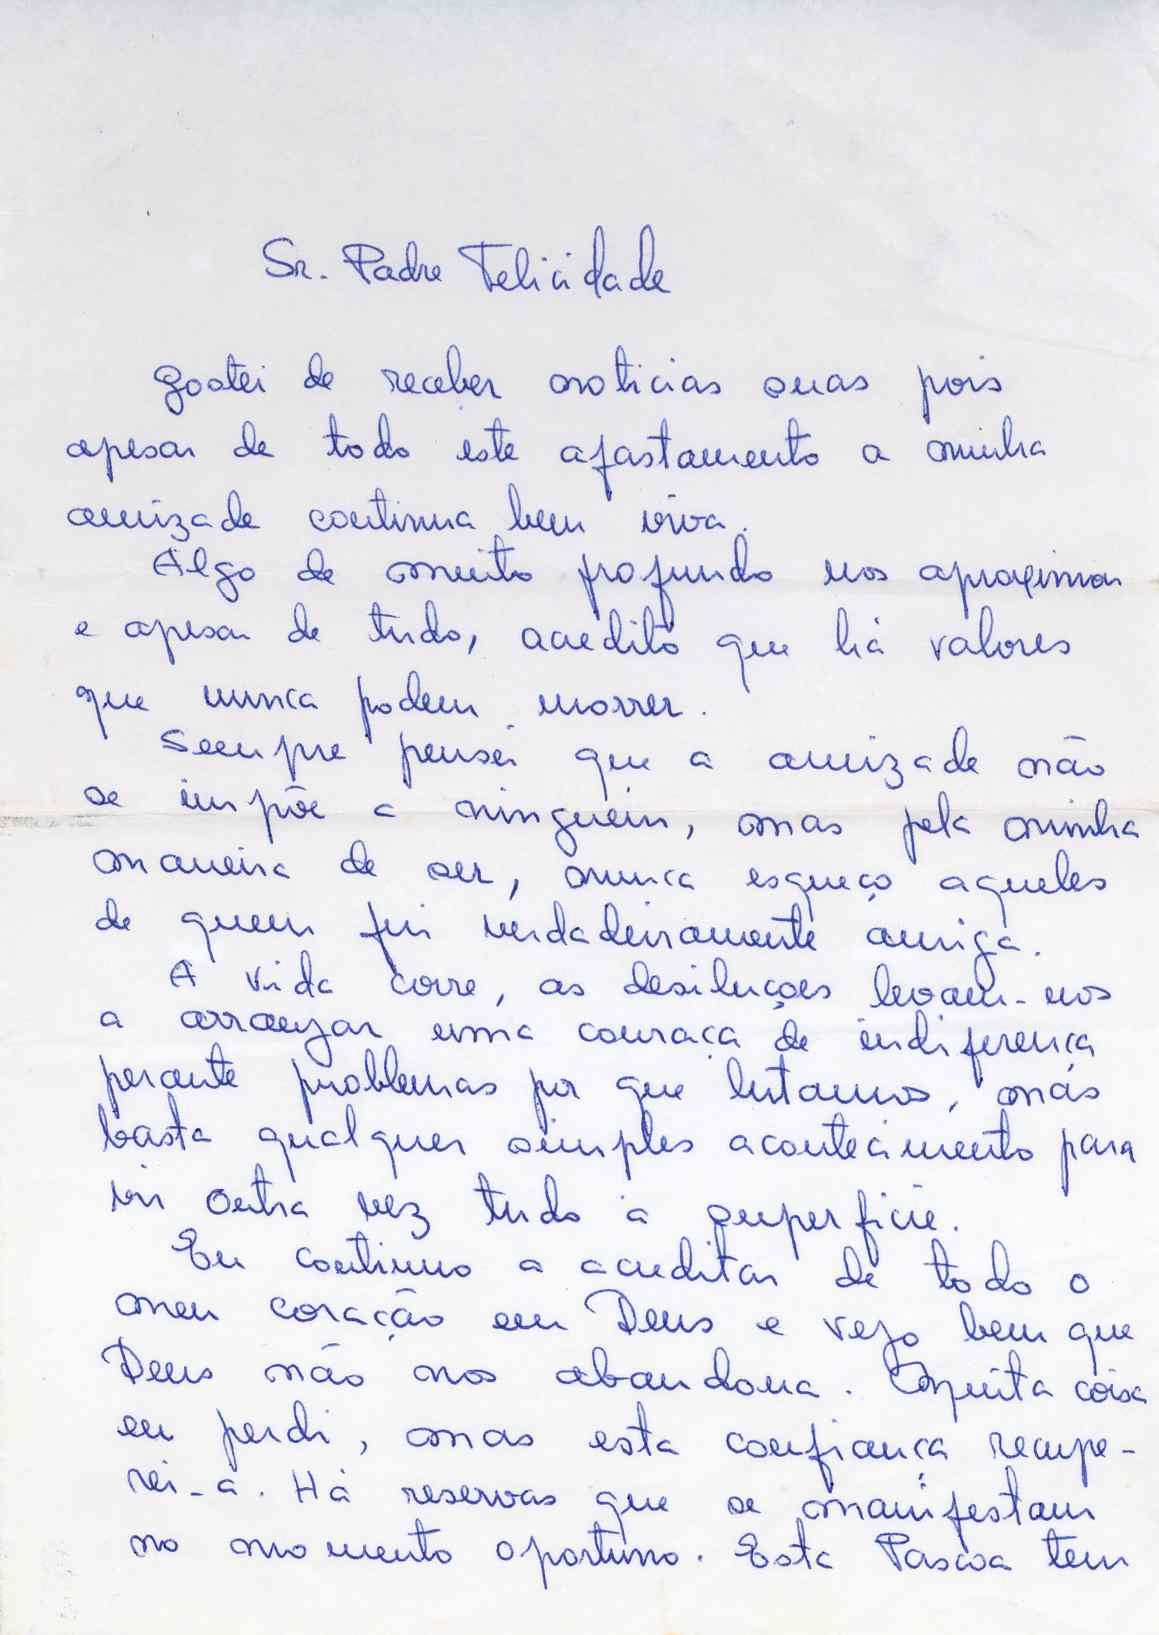 Sr. Padre Felicidade
Gostei de receber noticias suas pois
apesar de todo este afastamento a minha
amizade continua bem viva.
Algo de muito profundo nos aproximou
e apesar de tudo, acredito que há valores
que nunca podem morrer.
Sempre pensei que a amizade não
se impõe a ninguém, mas pela minha
maneira de ser, nunca esqueço aqueles
de quem fui verdadeiramente amiga.
A vida corre, as desiluções levam-nos
a arranjar uma couraça de indiferença
perante problemas por que lutamos, mas
basta qualquer simples acontecimento para
vir outra vez tudo à superficie.
Eu continuo a acreditar de todo o
meu coração em Deus e vejo bem que
Deus não nos abandona. Muita coisa
eu perdi, mas esta confiança recupe-
rei-a. Há reservas que se manifestam
no momento oportuno. Esta Pascoa tem